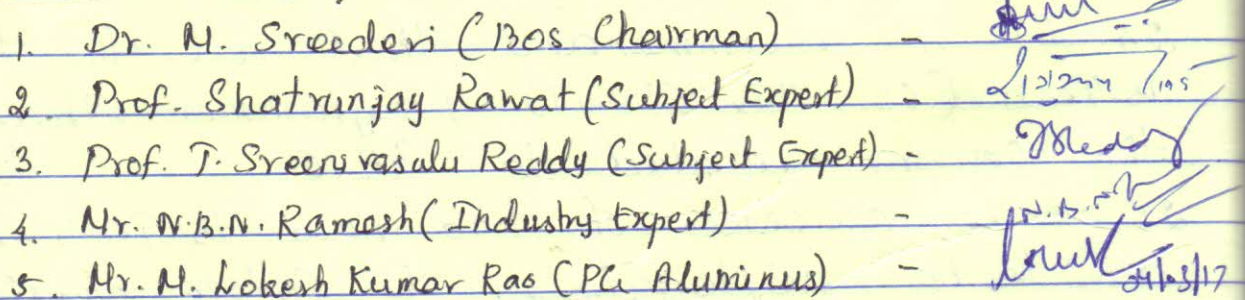 1. Dr. M. Sreedevi (BOS Chairman) -
2. Prof. Shatrunjay Rawat (Subject Expert) -
3. Prof. T. Sreenivasulu Reddy (Subject Expert) - Reddy
4. Mr. N.B.N. Ramesh (Industry Expert) - N.B.N
5. Mr. M. Lokesh Kumar Rao (PG Aluminus) -